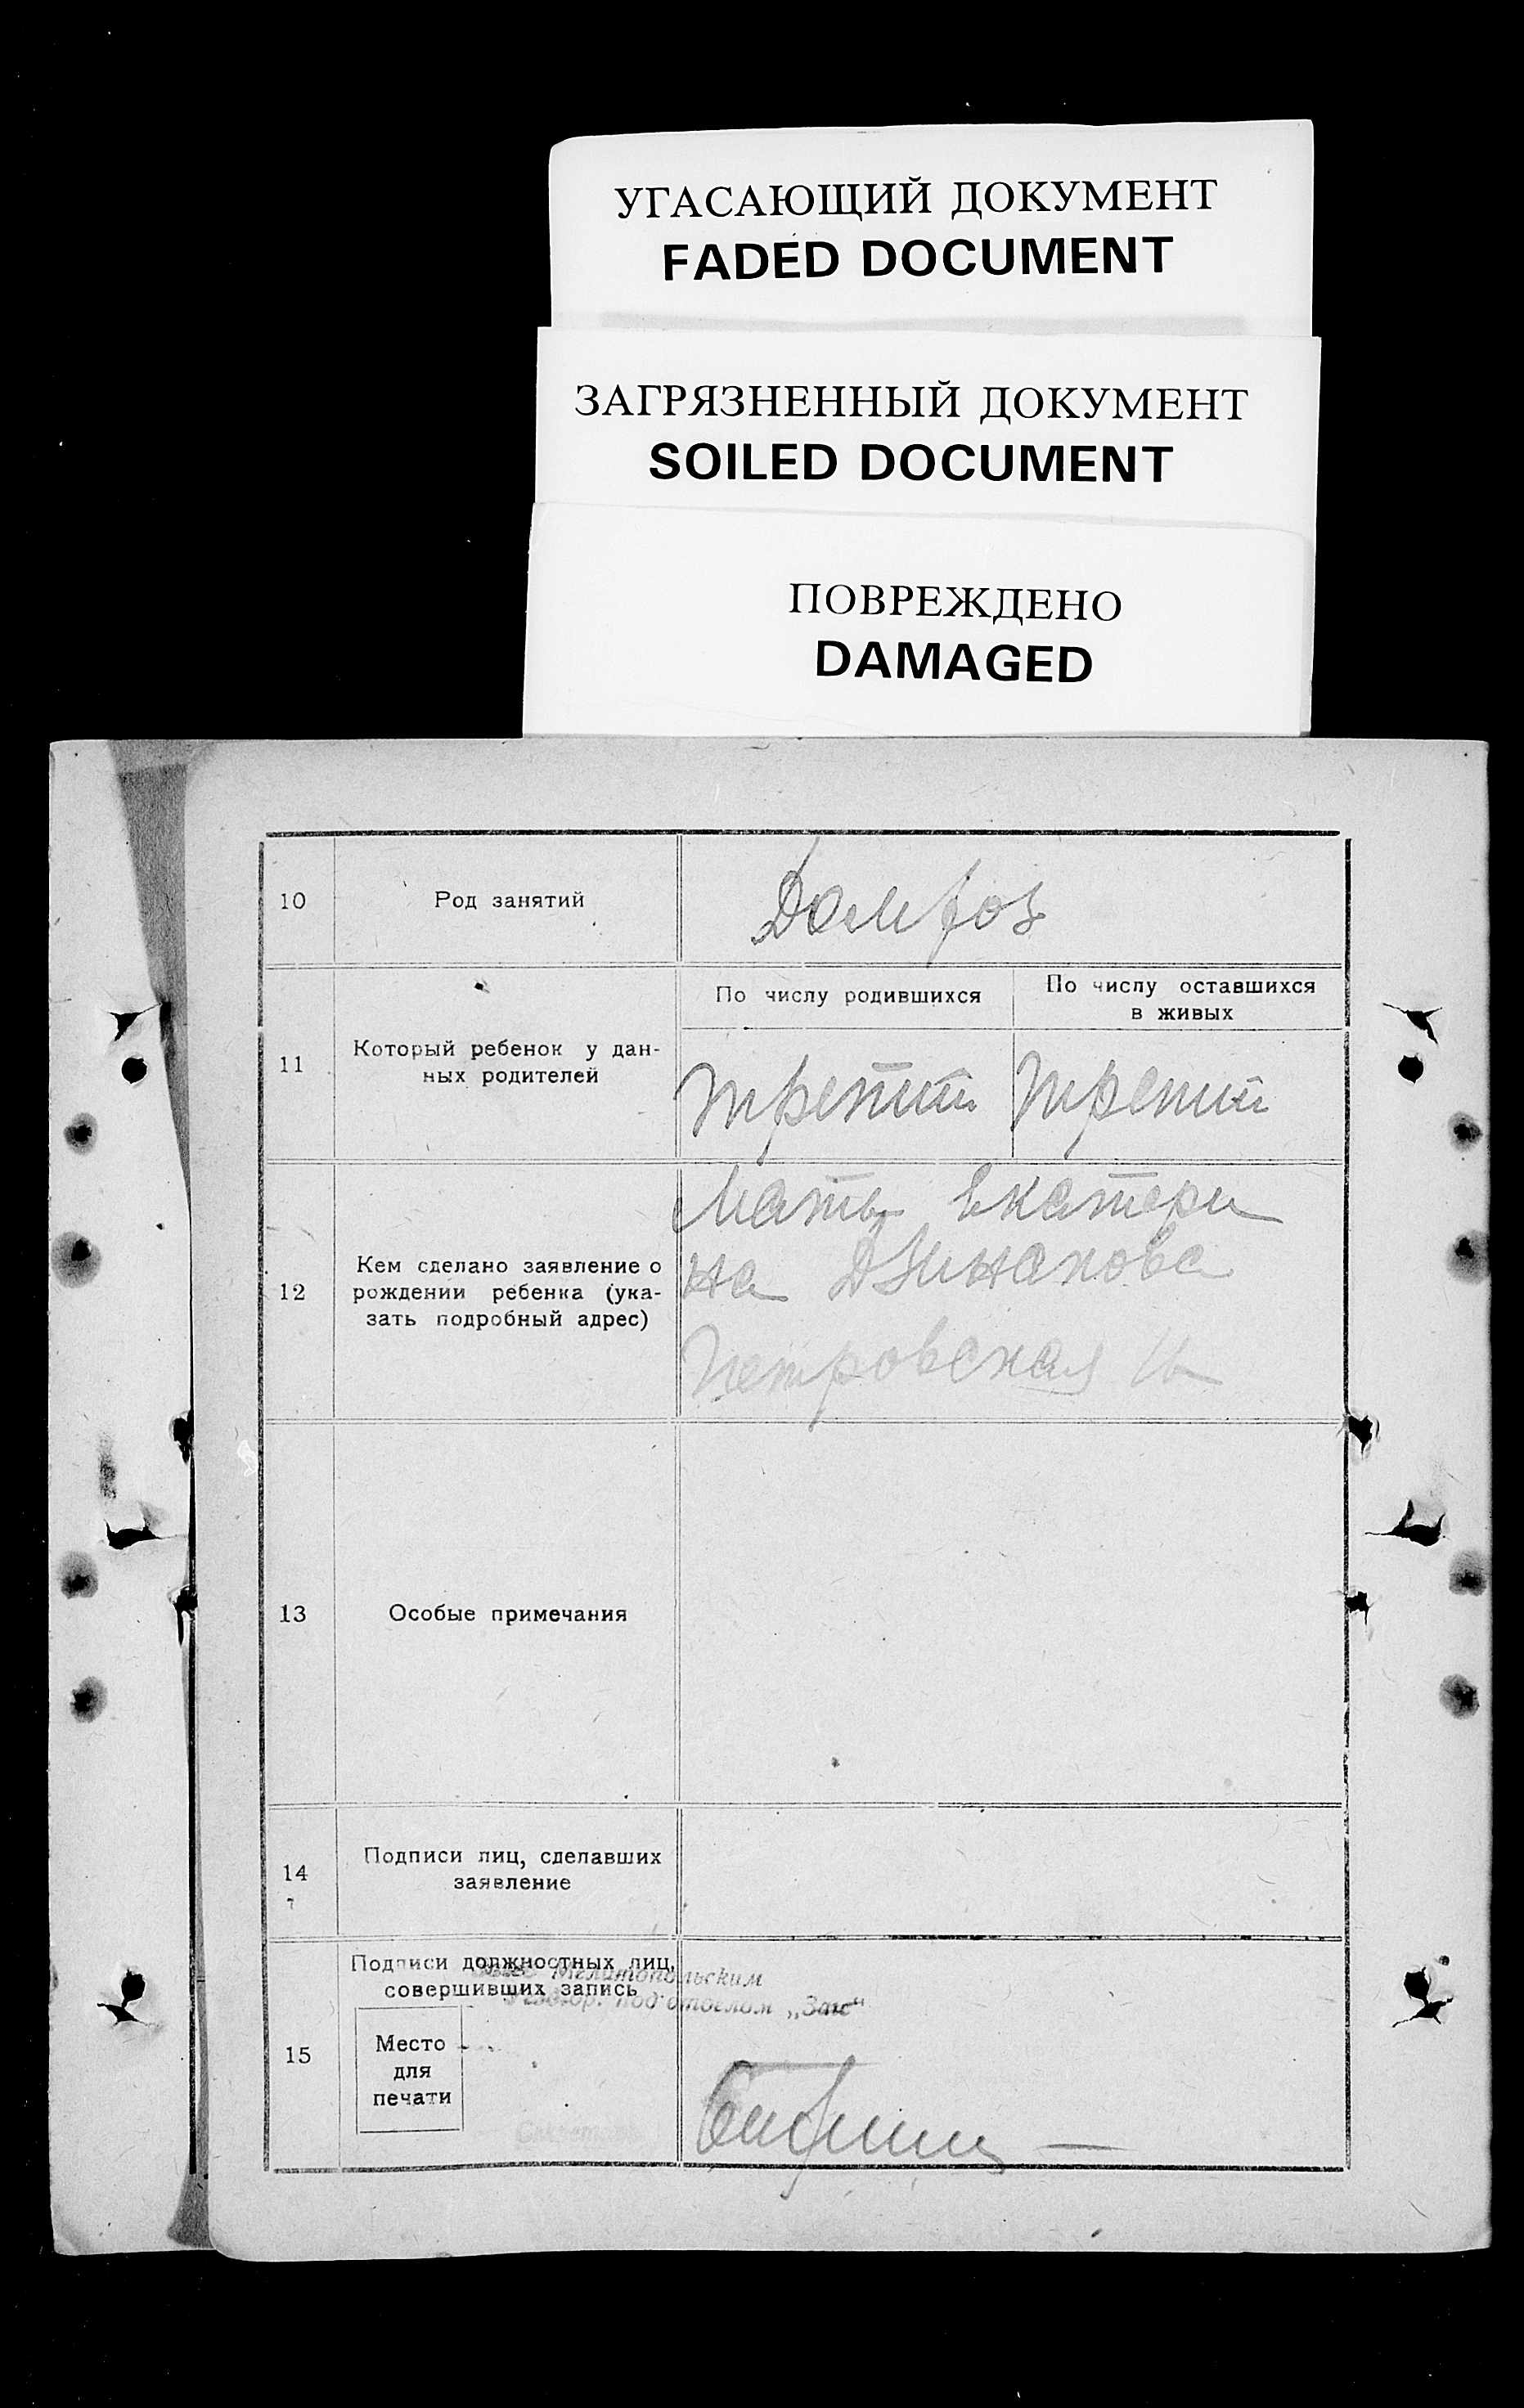 УГАСАЮЩИЙ ДОКУМЕНТ
FADED DOCUMENT
ЗАГРЯЗНЕННЫЙ ДОКУМЕНТ
SOILED DOCUMENT
ПОВРЕЖДЕНО
DAMAGED
10
Род занятий
Домхоз
11
Который ребенок у дан-
ных родителей
По числу родившихся
По числу оставшихся
в живых
третий
третий
12
Кем сделано заявление о
рождении ребенка (ука-
зать подробный адрес)
Мать Екатери
на
Петровская
13
Особые примечания
14
Подписи лиц, сделавших
заявление
15
Подписи должностных лиц,
совершивших запись
Мелитопольским
под отделом „Загс“
Место
для
печати